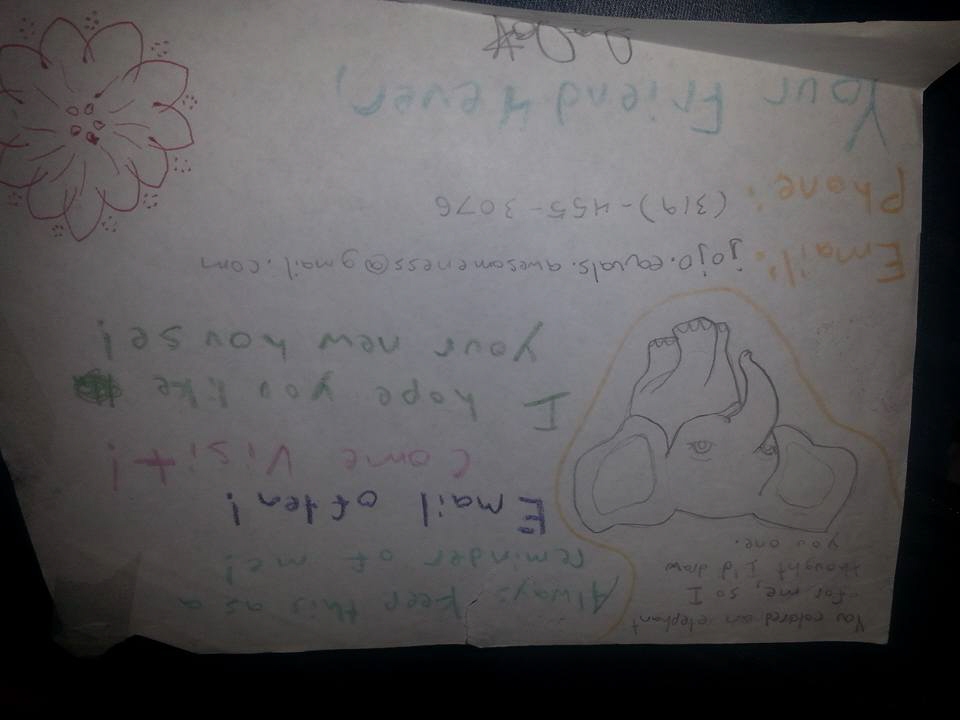 You colored an elephant
for me, so I
thought i'd draw
you one.
Always keep this as a
reminder of me!
Email often!
Come Visit!
I hope you like
your new house!
Email: jojo.equals.awesomeness@gmail.com
Phone: (319)-455-3076
Your Friend 4ever,